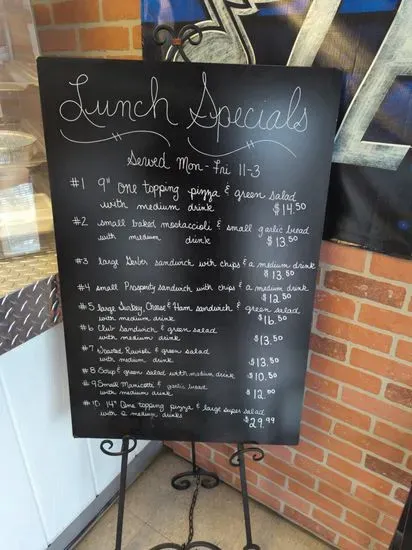 Lunch Specials
Served Mon-Fri 11-3
#1 9" One topping pizza & green salad
with medium drink $14.50
#2 small baked mostaccioli & small garlic bread
with medium drink $13.50
#3 large Gerber sandwich with chips & a medium drink
$13.50
#4 small Prosperity sandwich with chips & a medium drink
$12.50
#5 large Turkey, Cheese & Ham sandwich & green salad
with medium drink $16.50
#6 Club Sandwich & green salad
with medium drink $13.50
#7 Toasted Ravioli & green salad
with medium drink $13.50
#8 Soup & green salad with medium drink $10.50
#9 Small Manicotti & garlic bread
with medium drink $12.00
#10 14" One topping pizza & large super salad
with 2 medium drinks $29.99